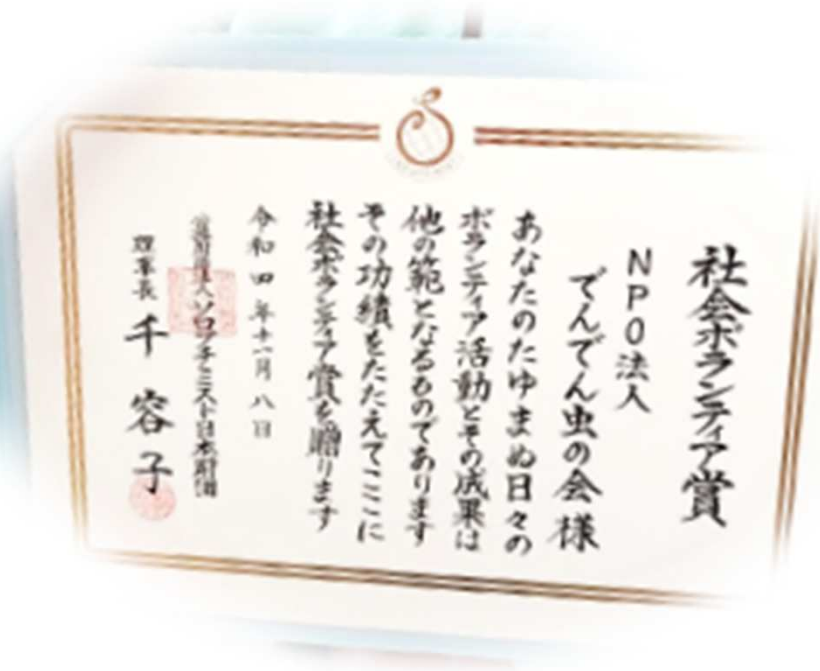 社会ボランティア賞
NPO法人
でんでん虫の会様
あなたのたゆまぬ日々の
ボランティア活動とその成果は
他の範となるものであります
その功績をたたえてここに
社会ボランティア賞を贈ります
令和四年十一月八日
ソロプチミスト日本財団
理事長 千容子